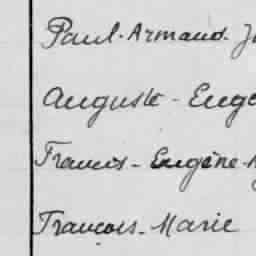 Paul-Armand-J
Auguste-Euge
Francis-Eugène-
François-Marie